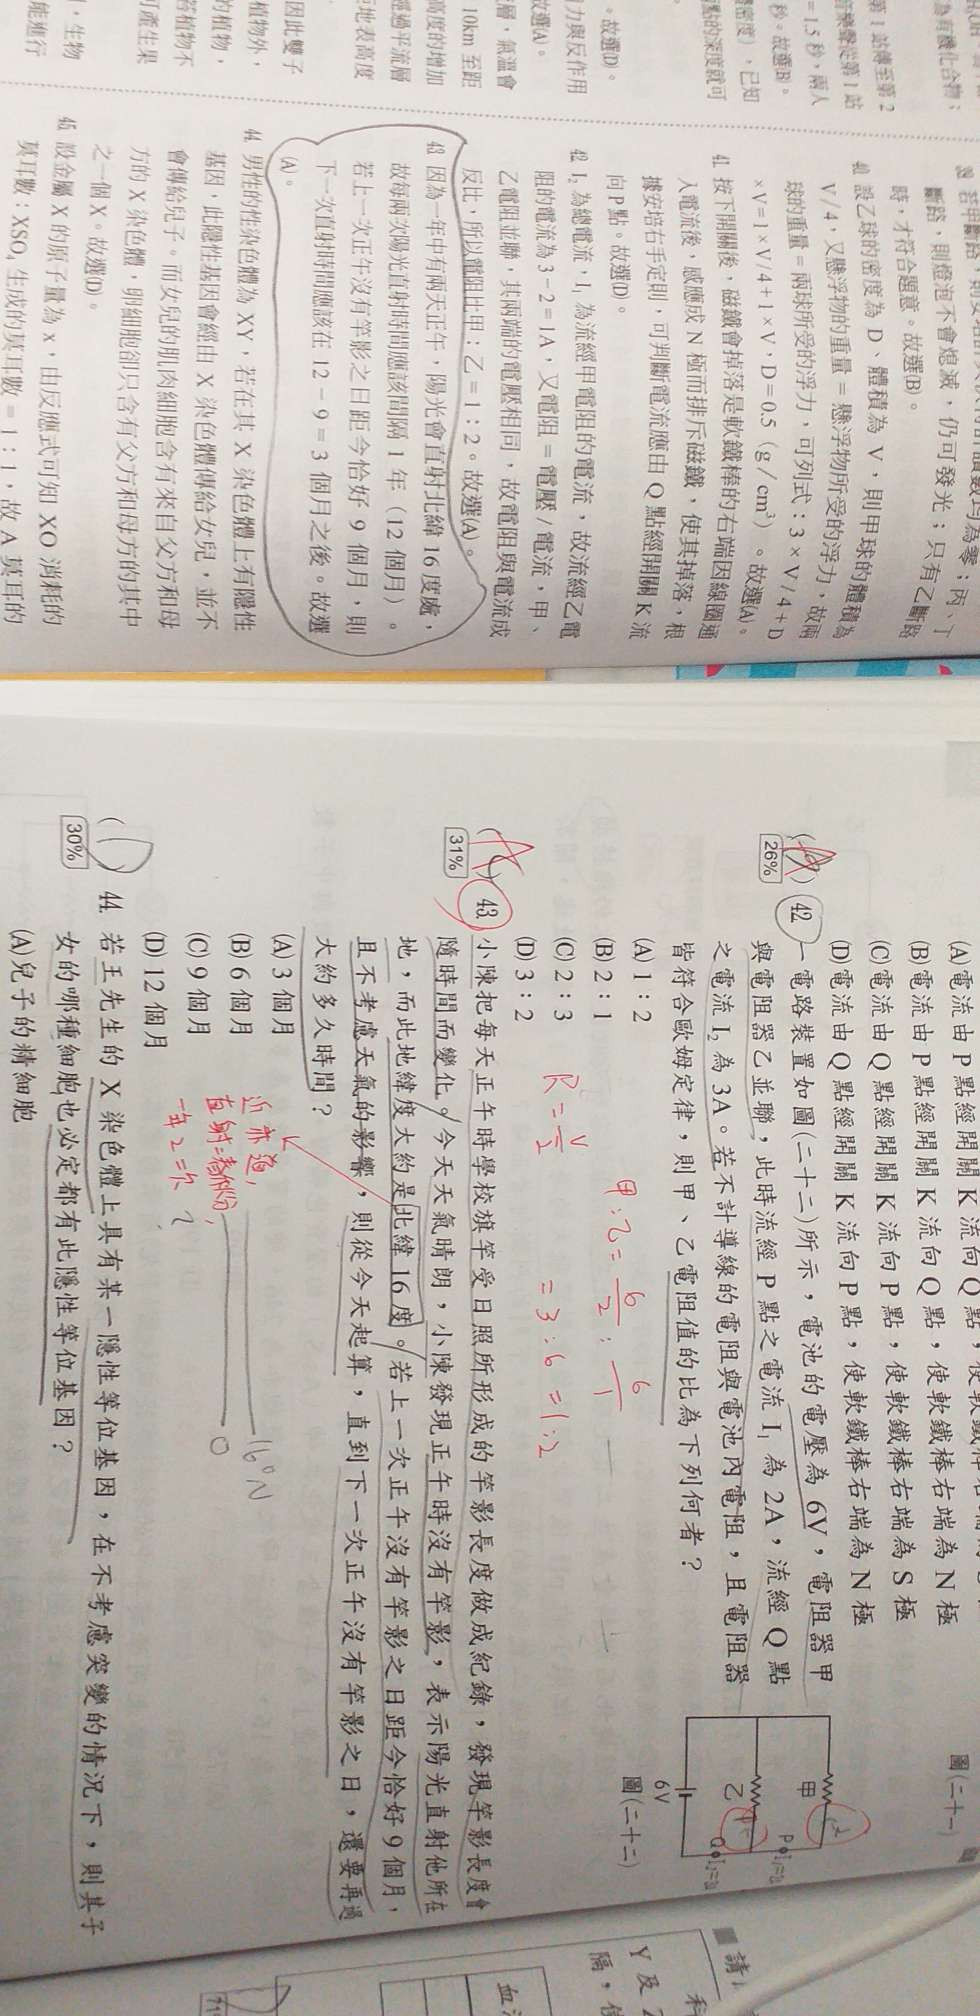 為有機化合物；
第 1 站傳至第 2
音樂聲從第 1 站
= 1.5 秒，兩人
秒。故選(B)。
密度)，已知
點的深度就可
。故選(D)。
力與反作用
故選(A)。
層，氣溫會
10km 至距
高度的增加
經過平流層
距地表高度
因此雙子
植物外，
的植物，
若植物不
可產生果
，生物
能進行
斷路，則燈泡不會熄滅，仍可發光；只有乙斷路
時，才符合題意。故選(B)。
40. 設乙球的密度為 D、體積為 V，則甲球的體積為
V/4，又懸浮物的重量 = 懸浮物所受的浮力，故兩
球的重量 = 兩球所受的浮力，可列式：3 × V/4 + D
× V = 1 × V/4 + 1 × V，D = 0.5（g/cm³）。故選(A)。
41. 按下開關後，磁鐵會掉落是軟鐵棒的右端因線圈通
入電流後，感應成 N 極而排斥磁鐵，使其掉落，根
據安培右手定則，可判斷電流應由 Q 點經開關 K 流
向 P 點。故選(D)。
42. I₂ 為總電流，I₁ 為流經甲電阻的電流，故流經乙電
阻的電流為 3 − 2 = 1A，又電阻 = 電壓 / 電流，甲、
乙電阻並聯，其兩端的電壓相同，故電阻與電流成
反比，所以電阻比甲：乙 = 1：2。故選(A)。
43. 因為一年中有兩天正午，陽光會直射北緯 16 度處，
故每兩次陽光直射時間應該間隔 1 年（12 個月）。
若上一次正午沒有竿影之日距今恰好 9 個月，則
下一次直射時間應該在 12 − 9 = 3 個月之後。故選
(A)。
44. 男性的性染色體為 XY，若在其 X 染色體上有隱性
基因，此隱性基因會經由 X 染色體傳給女兒，並不
會傳給兒子。而女兒的肌肉細胞含有來自父方和母
方的 X 染色體，卵細胞卻只含有父方和母方的其中
之一個 X。故選(D)。
45. 設金屬 X 的原子量為 x，由反應式可知 XO 消耗的
莫耳數：XSO₄ 生成的莫耳數 = 1：1，故 A 莫耳的
(A)電流由 P 點經開關 K 流向 Q 點，
(B)電流由 P 點經開關 K 流向 Q 點，使軟鐵棒右端為 N 極
(C)電流由 Q 點經開關 K 流向 P 點，使軟鐵棒右端為 S 極
(D)電流由 Q 點經開關 K 流向 P 點，使軟鐵棒右端為 N 極
圖(二十一)
26%
42. 一電路裝置如圖(二十二)所示，電池的電壓為 6V，電阻器甲
與電阻器乙並聯，此時流經 P 點之電流 I₁ 為 2A，流經 Q 點
之電流 I₂ 為 3A。若不計導線的電阻與電池內電阻，且電阻器
皆符合歐姆定律，則甲、乙電阻值的比為下列何者？
(A) 1：2
(B) 2：1
(C) 2：3
(D) 3：2
甲
乙
6V
圖(二十二)
甲：乙 = 6/2 : 6/1
= 3 : 6 = 1 : 2
31%
43. 小陳把每天正午時學校旗竿受日照所形成的竿影長度做成紀錄，發現竿影長度會
隨時間而變化。今天天氣晴朗，小陳發現正午時沒有竿影，表示陽光直射他所在
地，而此地緯度大約是北緯 16 度。若上一次正午沒有竿影之日距今恰好 9 個月，
且不考慮天氣的影響，則從今天起算，直到下一次正午沒有竿影之日，還要再過
大約多久時間？
(A) 3 個月
(B) 6 個月
(C) 9 個月
(D) 12 個月
近赤道，
直射=春秋分，
一年 2 次？
16°N
0
30%
44. 若王先生的 X 染色體上具有某一隱性等位基因，在不考慮突變的情況下，則其子
女的哪種細胞也必定都有此隱性等位基因？
(A)兒子的精細胞